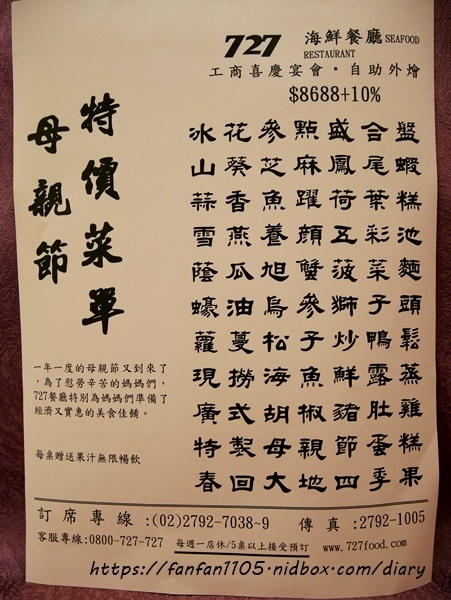 727 海鮮餐廳 SEAFOOD
RESTAURANT
工商喜慶宴會・自助外燴
$8688+10%
母親節
特價菜單
冰花參點盛合盤
山葵芝麻鳳尾蝦
蒜香魚躍荷葉糕
雪燕養顏五彩池
蔭瓜旭蟹菠菜麵
蠔油烏參獅子頭
蘿蔓松子炒鴨鬆
現撈海魚鮮露蒸
廣式胡椒豬肚雞
特製母親節蛋糕
春回大地四季果
一年一度的母親節又到來了
，為了慰勞辛苦的媽媽們，
727餐廳特別為媽媽們準備了
經濟又實惠的美食佳餚。
每桌贈送果汁無限暢飲
訂席專線:(02)2792-7038~9 傳真:2792-1005
客服專線:0800-727-727 每週一店休/5桌以上接受預訂 www.727food.com
https://fanfan1105.nidbox.com/diary